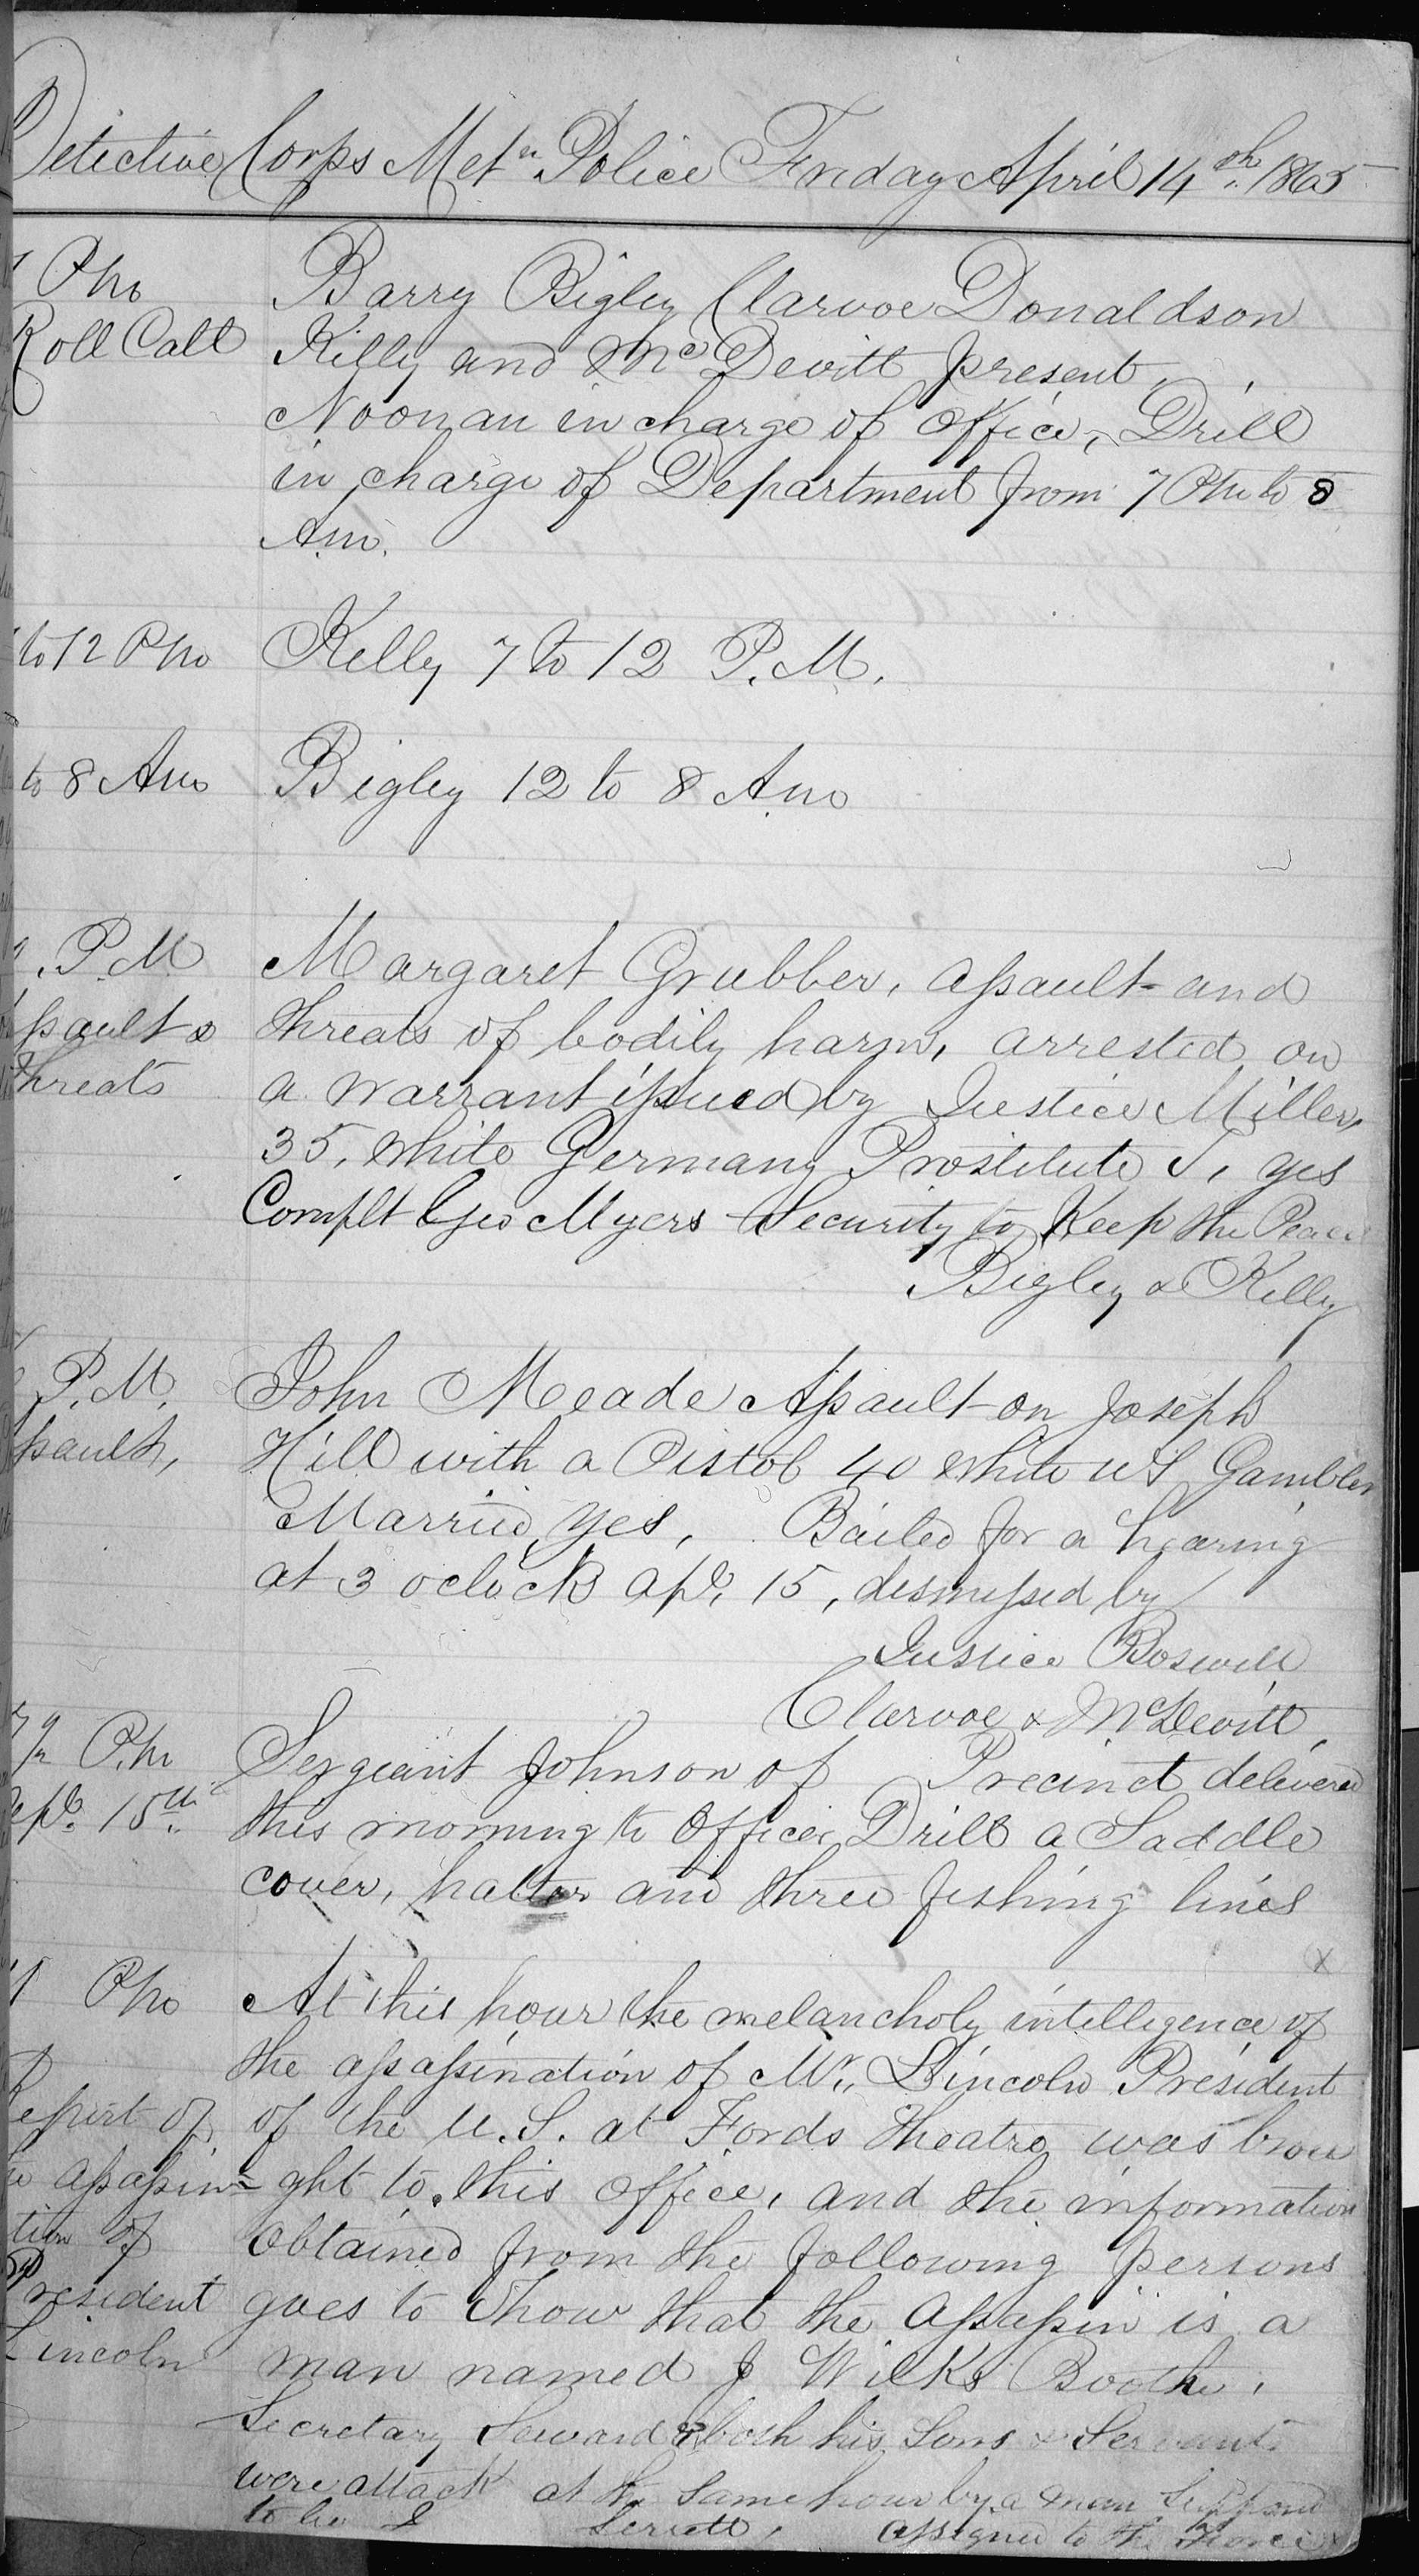 Detective Corps Metn Police Friday April 14th 1865
Pm
Roll Call
Barry Bigley Clarvoe Donaldson
Kelly and McDevitt present,
Noonan in charge of Office, Drill
in charge of Department from 7 Pm to 8
Am.
to 12 Pm
Kelly 7 to 12 P.M.
to 8 Am
Bigley 12 to 8 Am
P.M
ssault &
threats
Margaret Grubber, assault and
threats of bodily harm, arrested on
a warrant issued by Justice Miller,
35, white Germany Prostitute S, yes
Complt Geo Myers Security to Keep the Peace
Bigley & Kelly
P.M.
ssault,
John Meade Assault on Joseph
Hill with a Pistol 40 white US Gambler
Married, yes, Bailed for a hearing
at 3 oclock Apl. 15, dismissed by
Justice Boswell
Clarvoe & McDevitt,
P.m
15th
Sergeant Johnson of Precinct delivered
this morning to Officer Drill a Saddle
cover, halter and three fishing lines
x
Pm
At this hour the melancholy intelligence of
the assassination of Mr. Lincoln President
of the U.S. at Fords Theatre was brou
ght to this office, and the information
obtained from the following persons
goes to show that the assassin is a
man named J Wilks Boothe,
Report of
assassin=
tion of
President
Lincoln
Secretary Seward & both his Sons & Servant
were attack at the Same hour by a man Supposed
to be Serrett, assigned to the